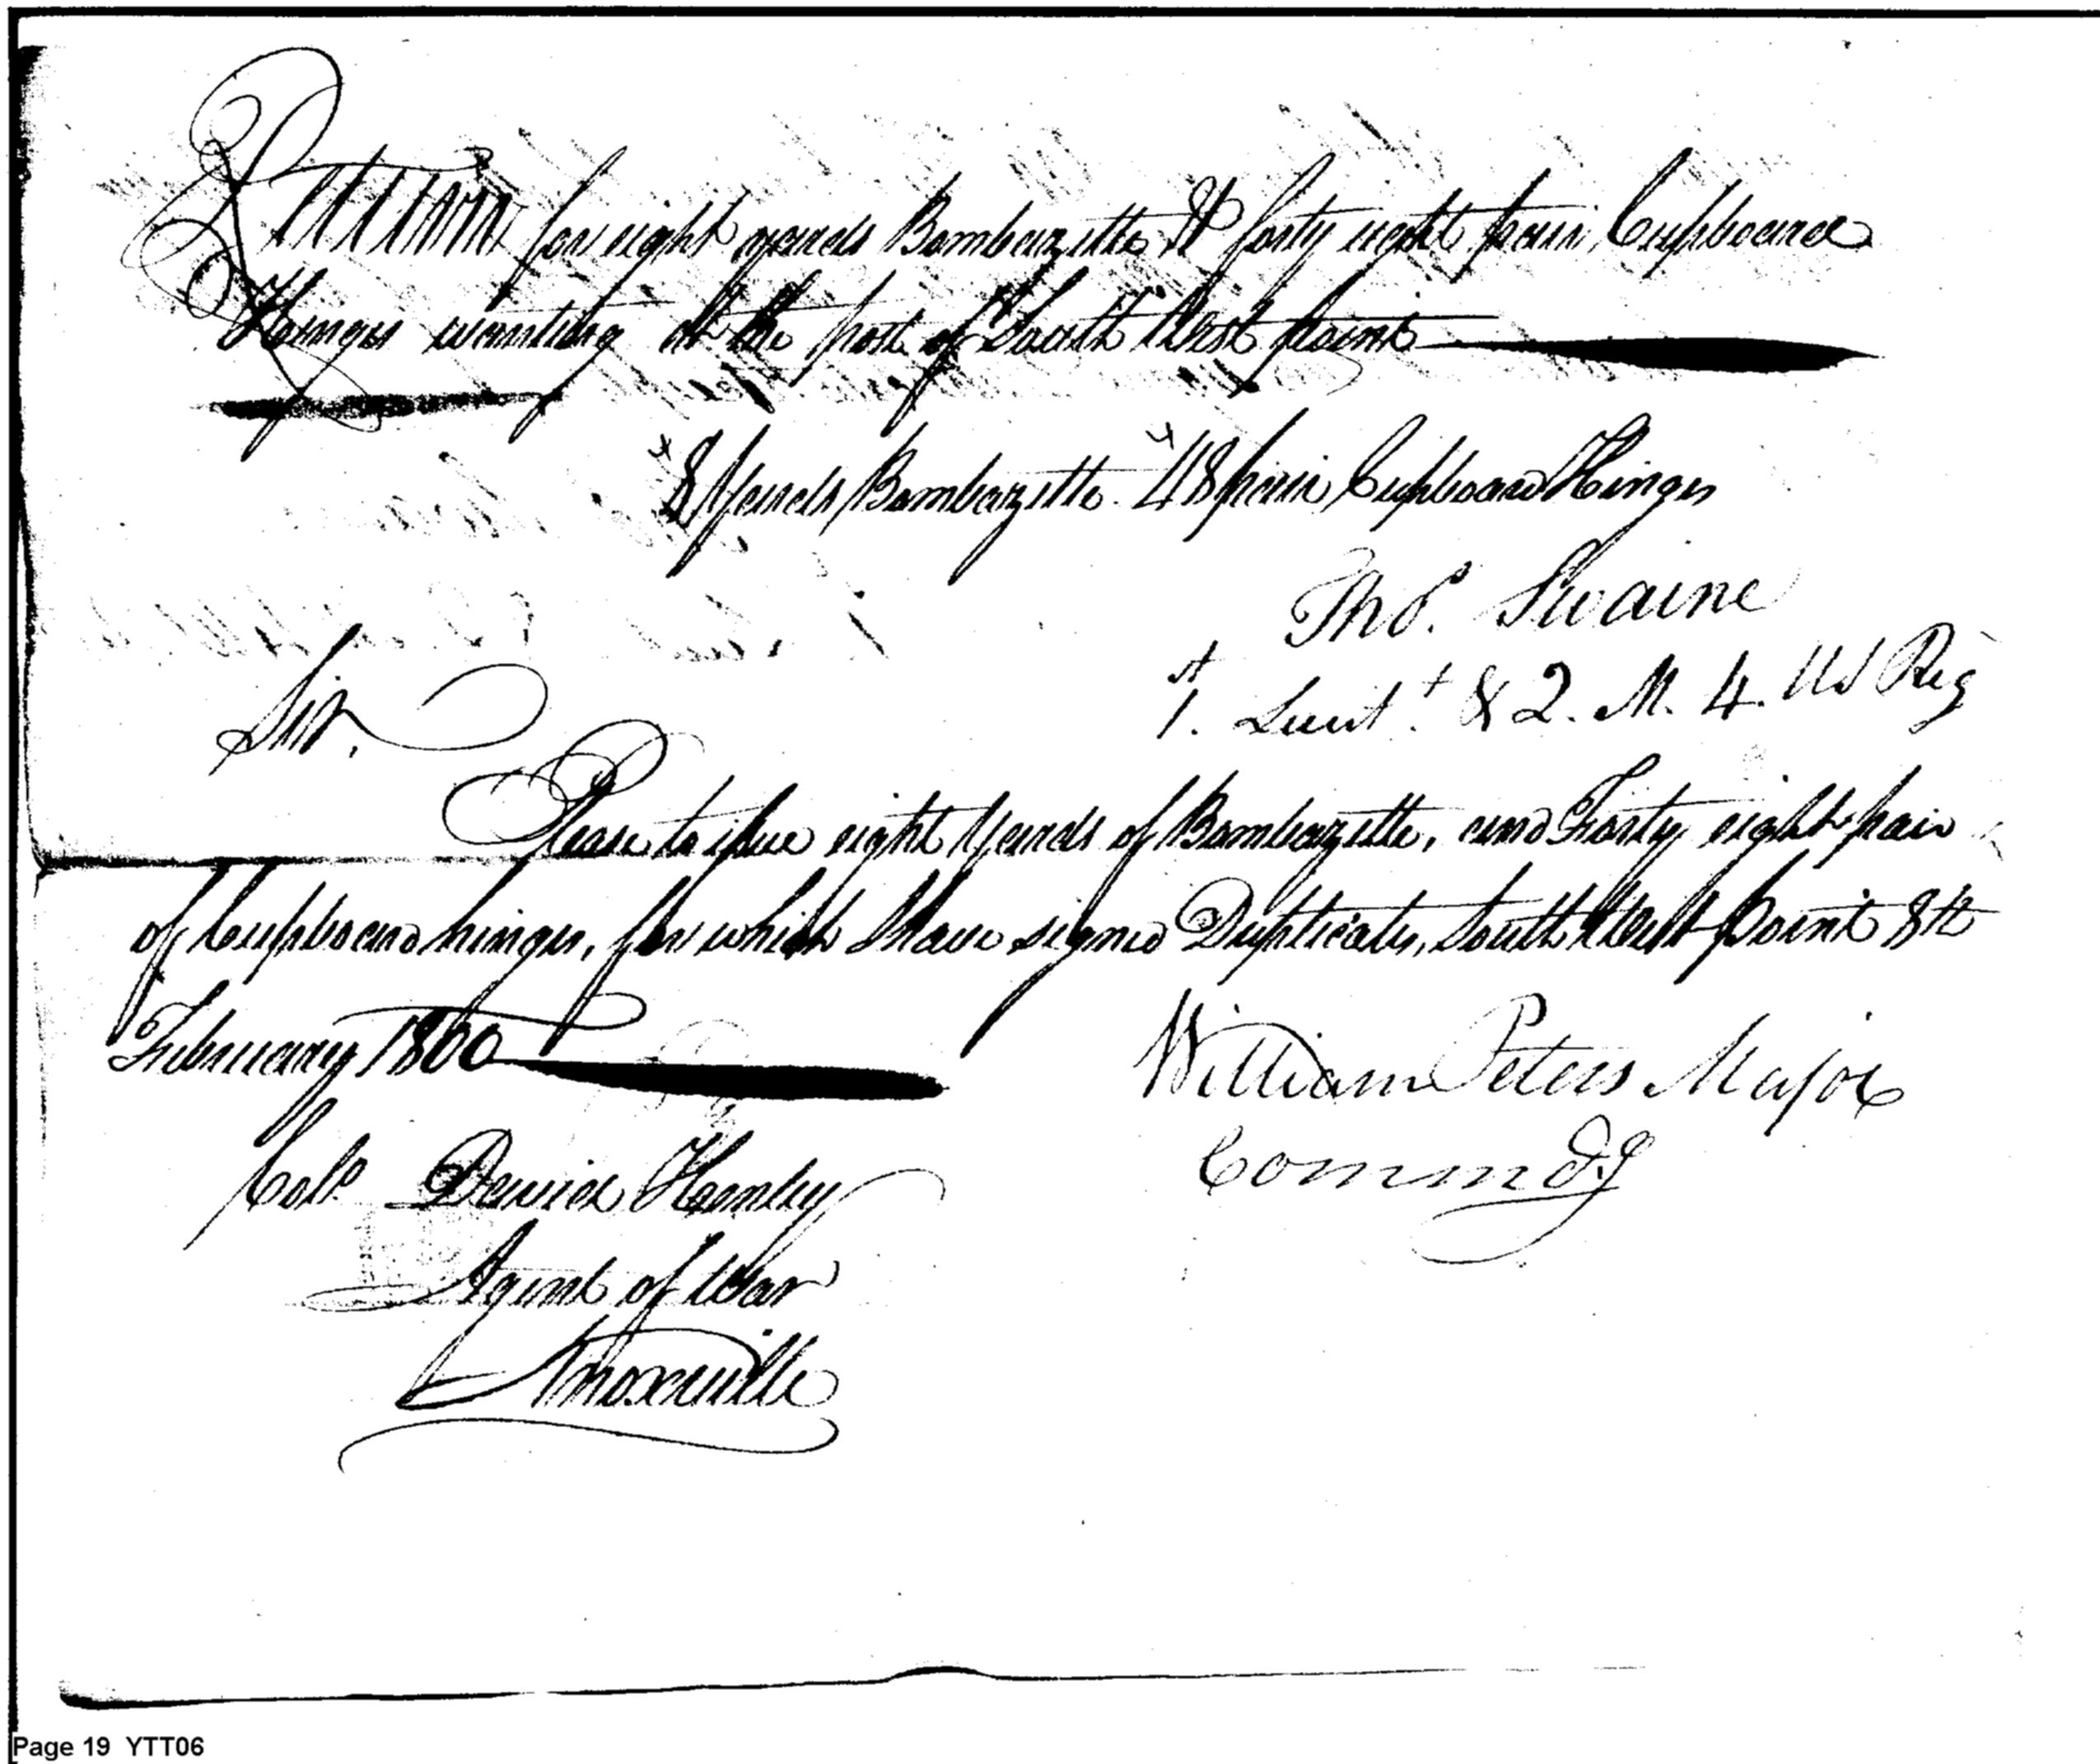 Return for eight yards Bombazette & forty eight pair Cupboard
Hinges wanting at the post of South West point
8 Yards Bombazette 48 pair Cupboard Hinges
Thos. Swaine
1.st Lieut.t & 2. M. 4. US Reg
Sir,
Please to issue eight Yards of Bombazette, and Forty eight pair
of Cupboard hinges, for which I have signed Duplicates, South West point 8th
February 1800
William Peters Major
Commdg
Colo David Henley
Agent of War
Knoxville
Page 19 YTT06